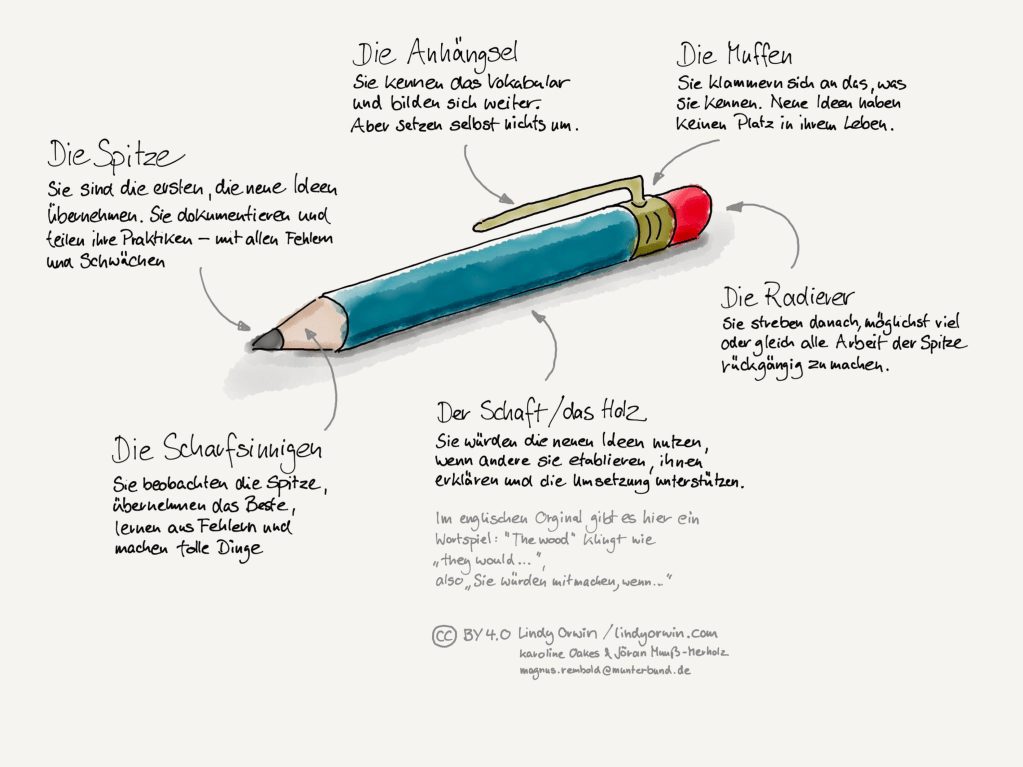 Die Anhängsel
Sie kennen das Vokabular
und bilden sich weiter.
Aber setzen selbst nichts um.
Die Muffen
Sie klammern sich an das, was
sie kennen. Neue Ideen haben
keinen Platz in ihrem Leben.
Die Spitze
Sie sind die ersten, die neue Ideen
übernehmen. Sie dokumentieren und
teilen ihre Praktiken – mit allen Fehlern
und Schwächen
Die Radierer
Sie streben danach, möglichst viel
oder gleich alle Arbeit der Spitze
rückgängig zu machen.
Die Scharfsinnigen
Sie beobachten die Spitze,
übernehmen das Beste,
lernen aus Fehlern und
machen tolle Dinge
Der Schaft/das Holz
Sie würden die neuen Ideen nutzen,
wenn andere sie etablieren, ihnen
erklären und die Umsetzung unterstützen.
Im englischen Orginal gibt es hier ein
Wortspiel: "The wood" klingt wie
„they would...",
also „Sie würden mitmachen, wenn..."
CC BY 4.0 Lindy Orwin / lindyorwin.com
Karoline Oakes & Jöran Muuß-Merholz
magnus.rembold@munterbund.de